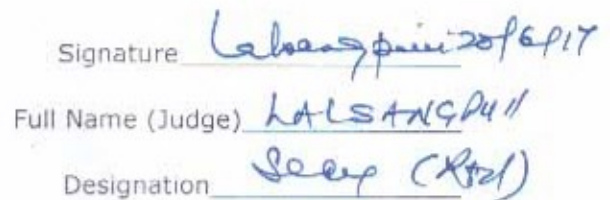 Signature Lalsangpuii 20/6/17
Full Name (Judge) LALSANGPUII
Designation Secy (Rtd)